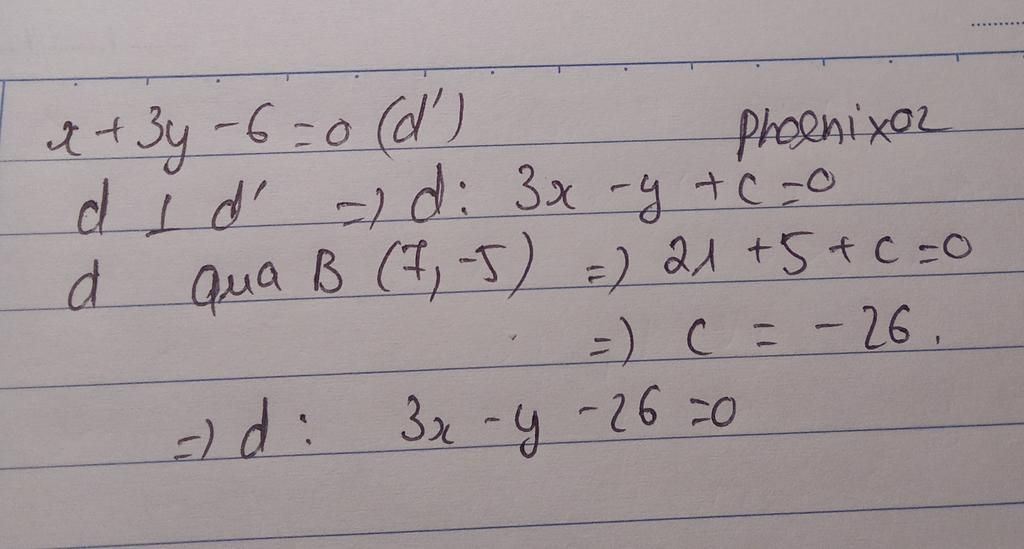 x + 3y - 6 = 0 (d')
phoenix02
d ⊥ d' => d: 3x - y + c = 0
d qua B (7, -5) => 21 + 5 + c = 0
=> c = -26.
=> d: 3x - y - 26 = 0